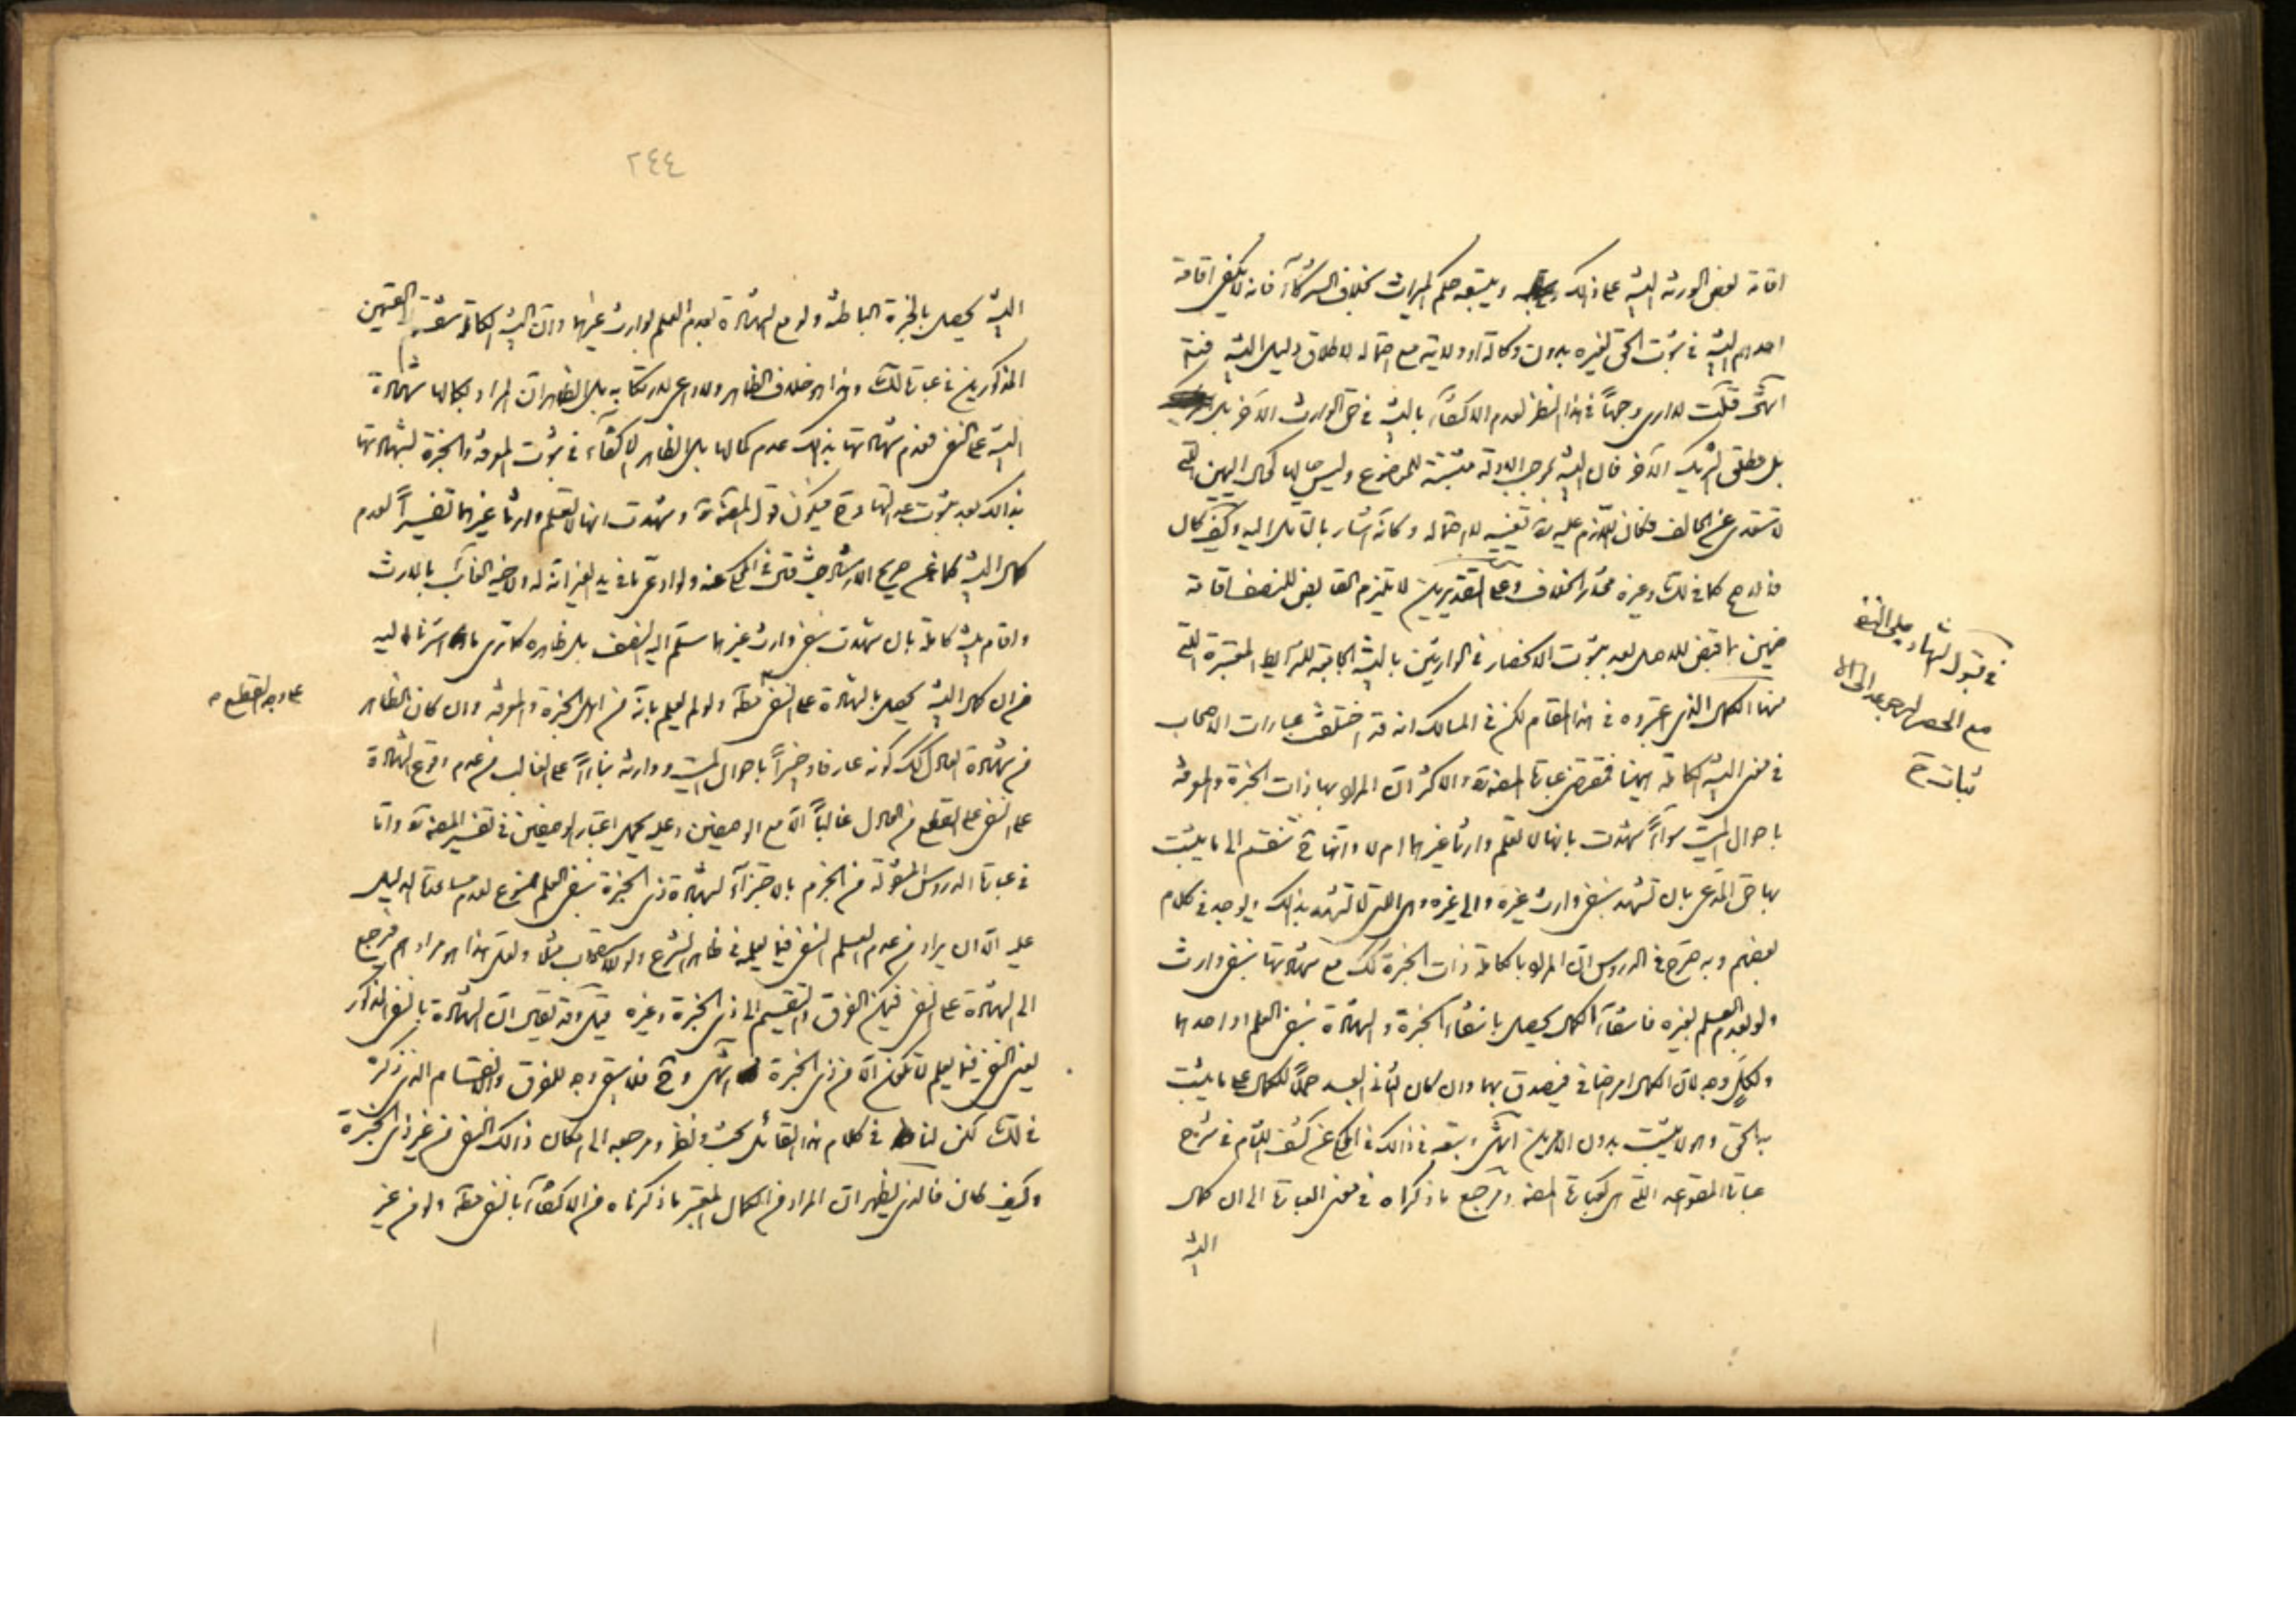 اقامة بعض الورثة البينة على ذلك ويتبعه حكم الميراث بخلاف الشركاء فانه لا يكفي اقامة
احدهم البينة في ثبوت الحق لغيره بدون وكالة او ولاية مع احتماله لاطلاق دليل البينة فتم
انتهى قلت لا ارى وجها في هذا النظر لعدم الاكتفاء بالبينة في حق الوارث الاخر بل
بل مطلق الشريك الاخر فان البينة بموجب الادلة مثبتة للموضوع وليس حالها كحال اليمين التي
لا تتعدى عن الحالف فكان اللازم عليه ره تعيينه للاحتمال وكانه اشار بالتامل اليه وكيف كان
فالارجح كما في لك وغيره محل الخلاف وعلى التقديرين لا يلزم القابض للنصف اقامة
ضمين بما قبض للاصل بعد ثبوت الانحصار في الوارثين بالبينة الجامعة للشرايط المعتبرة التي
منها الكمال الذي اعتبروه في هذا المقام لكن في المسالك انه قد اختلفت عبارات الاصحاب
في معنى البينة الكاملة هيهنا فمقتضى عبارة المصنف ره والاكثر ان المراد بها ذات الخبرة والمعرفة
باحوال الميت سواء شهدت بانها لا تعلم وارثا غيرهما ام لا وانها ح تنقسم الى ما يثبت
بها حق المدعي بان تشهد بنفي وارث غيره والى غيره وهي التي لا تشهد بذلك ويوجد في كلام
بعضهم وبه صرح في الدروس ان المراد بالكاملة ذات الخبرة كك مع شهادتها بنفي وارث
ولو بعدم العلم بغيره فانتفاء الكمال يحصل بانتفاء الخبرة والشهادة بنفي العلم او احدهما
ولكل وجه لان الكمال امر اضافي فيصدق بهما وان كان الثاني اقعد حملا للكمال على ما يثبت
به الحق وهو لا يثبت بدون الامرين انتهى وتبعه في ذلك في المحكي عن كشف اللثام في شرح
عبارة القواعد التي هي كعبارة المصنف ومرجع ما ذكراه في معنى العبارة الى ان كمال
البينة
في قبول الشهادة على النفي
مع الحصر
اثبات ح
٢٤٤
البينة يحصل بالخبرة الباطنة ولو مع الشهادة بعدم العلم لوارث غيرهما وان البينة الكاملة منقسمة الى القسمين
المذكورين في عبارة لك وهذا هو خلاف الظاهر ولا داعي لارتكابه بل الظاهر ان المراد بكمالها شهادة
البينة على النفي فعدم شهادتها بذلك عدم كمالها بل الظاهر الاكتفاء في ثبوت المعرفة والخبرة بشهادتها
بذلك بعد ثبوت عدالتها فيكون قول المصنف ره وشهدت انها لا تعلم وارثا غيرهما تفسيرا لعدم
كمال البينة كما عن صريح الارشاد حيث قال في المحكي عنه ولو ادعى ما في يد الغير انه له ولاخيه الغائب بالارث
واقام بينة كاملة بان شهدت بنفي وارث غيرهما سلم اليه النصف بل ظاهره كما ترى ما اشرنا اليه
من ان كمال البينة يحصل بالشهادة على النفي مطلقا ولو لم يعلم بانه من اهل الخبرة والمعرفة وان كان الظاهر
على وجه القطع
من شهادة العادل كك كونه عارفا وخبيرا باحوال الميت ووارثه بناء على الغالب من عدم وقوع الشهادة
على النفي على القطع من العادل غالبا الا مع الوصفين وعليه يحمل اعتبار الوصفين في تفسير المصنف ره واما
في عبارة الدروس المنقولة من الجزم بالاجتزاء بشهادة ذي الخبرة بنفي العلم فممنوع لعدم مساعدة الدليل
عليه الا ان يراد من عدم العلم النفي فيما يعلمه في ظاهر الشرع ولو بالاستصحاب مثلا ولعل هذا هو مرادهم فيرجع
الى الشهادة على النفي فيمكن الفرق والتقسيم الى ذي الخبرة وغيره قيل وقد يقال ان الشهادة بالنفي المذكور
يعني النفي فيما يعلم لا تكون الا من ذي الخبرة انتهى وح فلا يبقى وجه للفرق والانقسام الذي ذكره
في لك لكن لنا في كلام هذا القائل بحث ونظر ومرجعه الى امكان ذلك النفي من غير ذي الخبرة
وكيف كان فالذي يظهر ان المراد من الكمال المعتبر ما ذكرناه من الاكتفاء بالنفي مطلقا ولو من غير